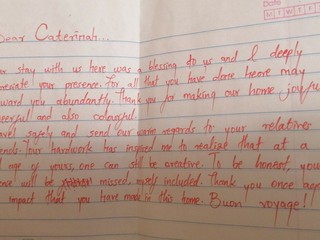 Date
Dear Caterinah...
stay with us here was a blessing to us and I deeply
your presence. For all that you have done here may
you abundantly. Thank you for making our home joyful
and also colourful.
safely and send our warm regards to your relatives
Your hardwork has inspired me to realize that at a
age of yours, one can still be creative. To be honest, your
will be missed, myself included. Thank you once again
impact that you have made in this home. Buon voyage!